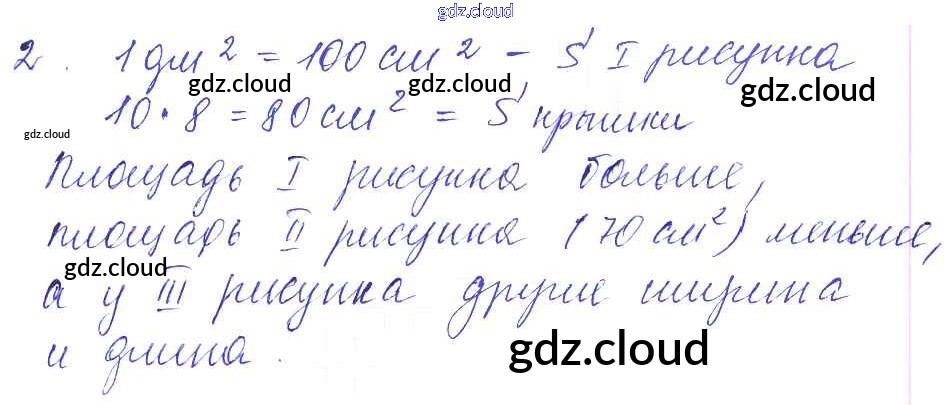 gdz.cloud
2. 1 дм² = 100 см² - S I рисунка
gdz.cloud gdz.cloud gdz.cloud
10 · 8 = 80 см² = S крышки
gdz.cloud
Площадь I рисунка больше,
gdz.cloud
площадь II рисунка (70 см²) меньше,
gdz.cloud
а у III рисунка другие ширина
и длина.
gdz.cloud